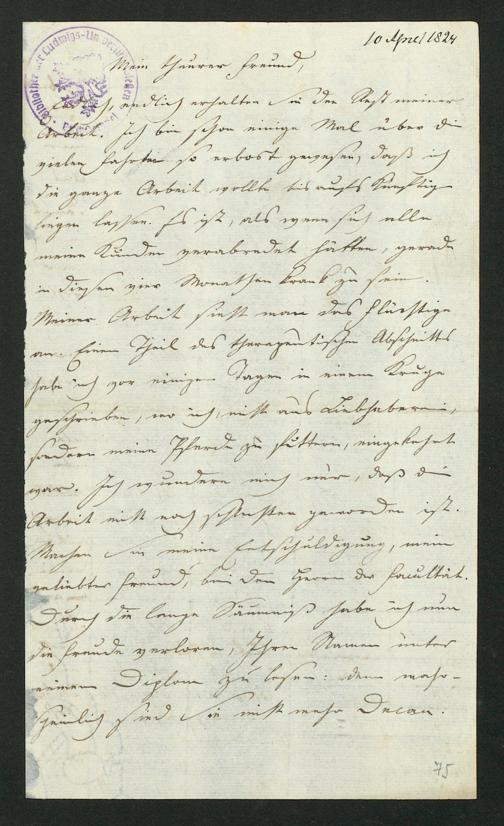 10 April 1824
Mein theurer Freund,
endlich erhalten Sie den Rest meiner
Arbeit. Ich bin schon einige Mal über die
vielen Fahrten so erbost gewesen, daß ich
die ganze Arbeit wollte bis aufs Künftige
liegen lassen. Es ist, als wenn sich alle
meine Kunden verabredet hätten, gerade
in diesen vier Monathen krank zu sein.
Meiner Arbeit sieht man das flüchtige
an. Einen Theil des therapeutischen Abschnitts
habe ich vor einigen Tagen in einem Kruge
geschrieben, wo ich, nicht aus Liebhaberei,
sondern meine Pferde zu füttern, eingekehrt
war. Ich wundere mich nur, daß die
Arbeit nicht noch schlechter geworden ist.
Machen Sie meine Entschuldigung, mein
geliebter Freund, bei den Herrn der Facultät.
Durch die lange Säumniß habe ich nun
die Freude verloren, Ihren Namen unter
meinem Diplom zu lesen: denn wahr-
scheinlich sind Sie nicht mehr Decan.
75